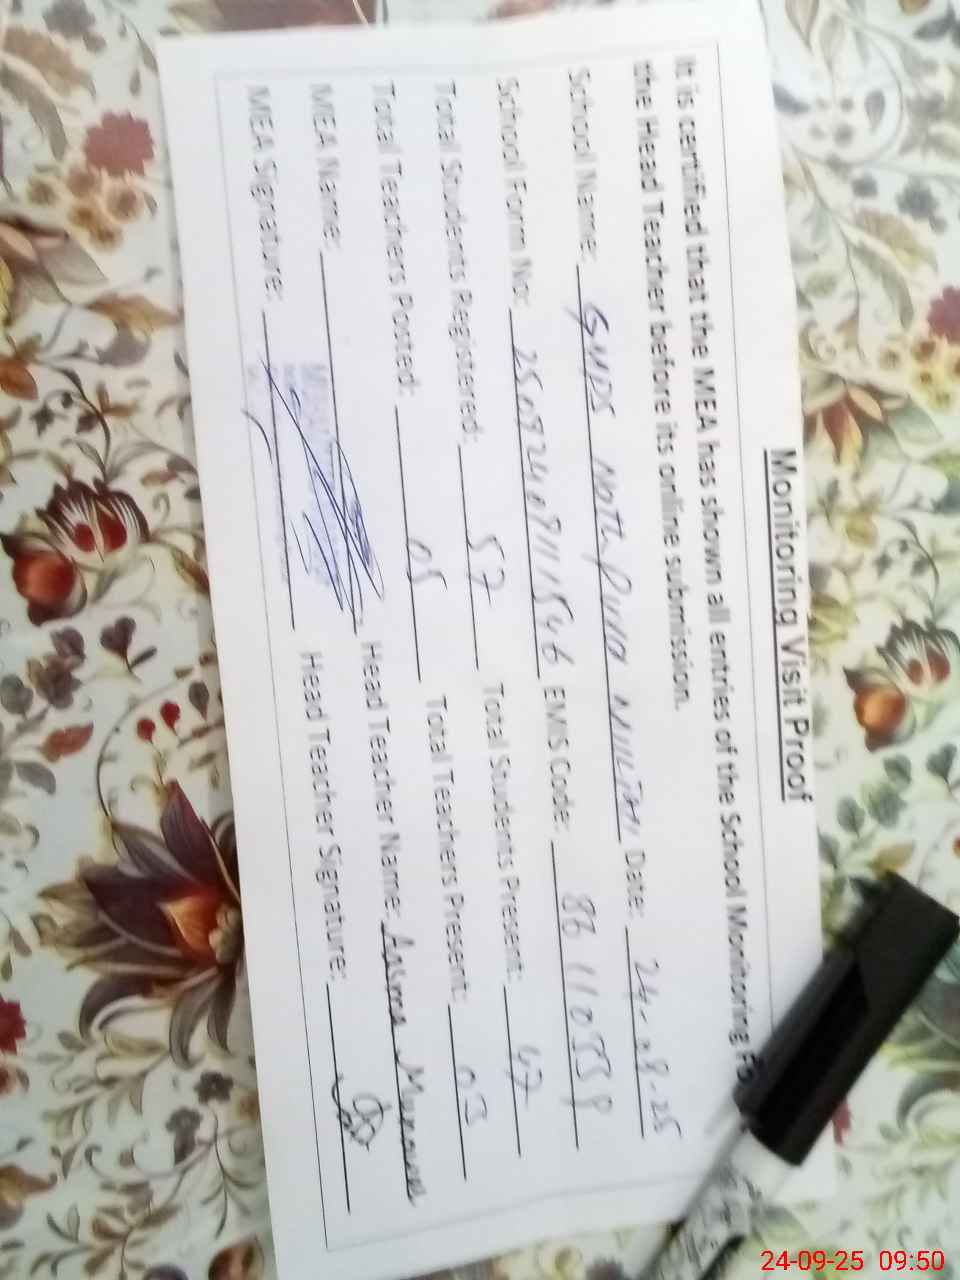 Monitoring Visit Proof
It is certified that the MEA has shown all entries of the School Monitoring
the Head Teacher before its online submission.
School Name: GMPS Date: 24-08-25
School Form No: EMIS Code:
Total Students Registered: 57 Total Students Present: 47
Total Teachers Posted: 05 Total Teachers Present: 03
MEA Name: Head Teacher Name: Aasma
MEA Signature: Head Teacher Signature:
24-09-25 09:50